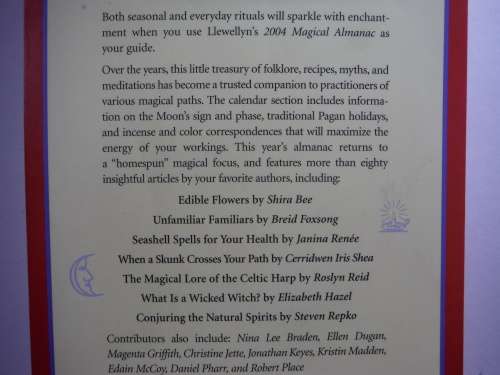 Both seasonal and everyday rituals will sparkle with enchant-
ment when you use Llewellyn's 2004 Magical Almanac as
your guide.
Over the years, this little treasury of folklore, recipes, myths, and
meditations has become a trusted companion to practitioners of
various magical paths. The calendar section includes informa-
tion on the Moon's sign and phase, traditional Pagan holidays,
and incense and color correspondences that will maximize the
energy of your workings. This year's almanac returns to
a "homespun" magical focus, and features more than eighty
insightful articles by your favorite authors, including:
Edible Flowers by Shira Bee
Unfamiliar Familiars by Breid Foxsong
Seashell Spells for Your Health by Janina Renée
When a Skunk Crosses Your Path by Cerridwen Iris Shea
The Magical Lore of the Celtic Harp by Roslyn Reid
What Is a Wicked Witch? by Elizabeth Hazel
Conjuring the Natural Spirits by Steven Repko
Contributors also include: Nina Lee Braden, Ellen Dugan,
Magenta Griffith, Christine Jette, Jonathan Keyes, Kristin Madden,
Edain McCoy, Daniel Pharr, and Robert Place